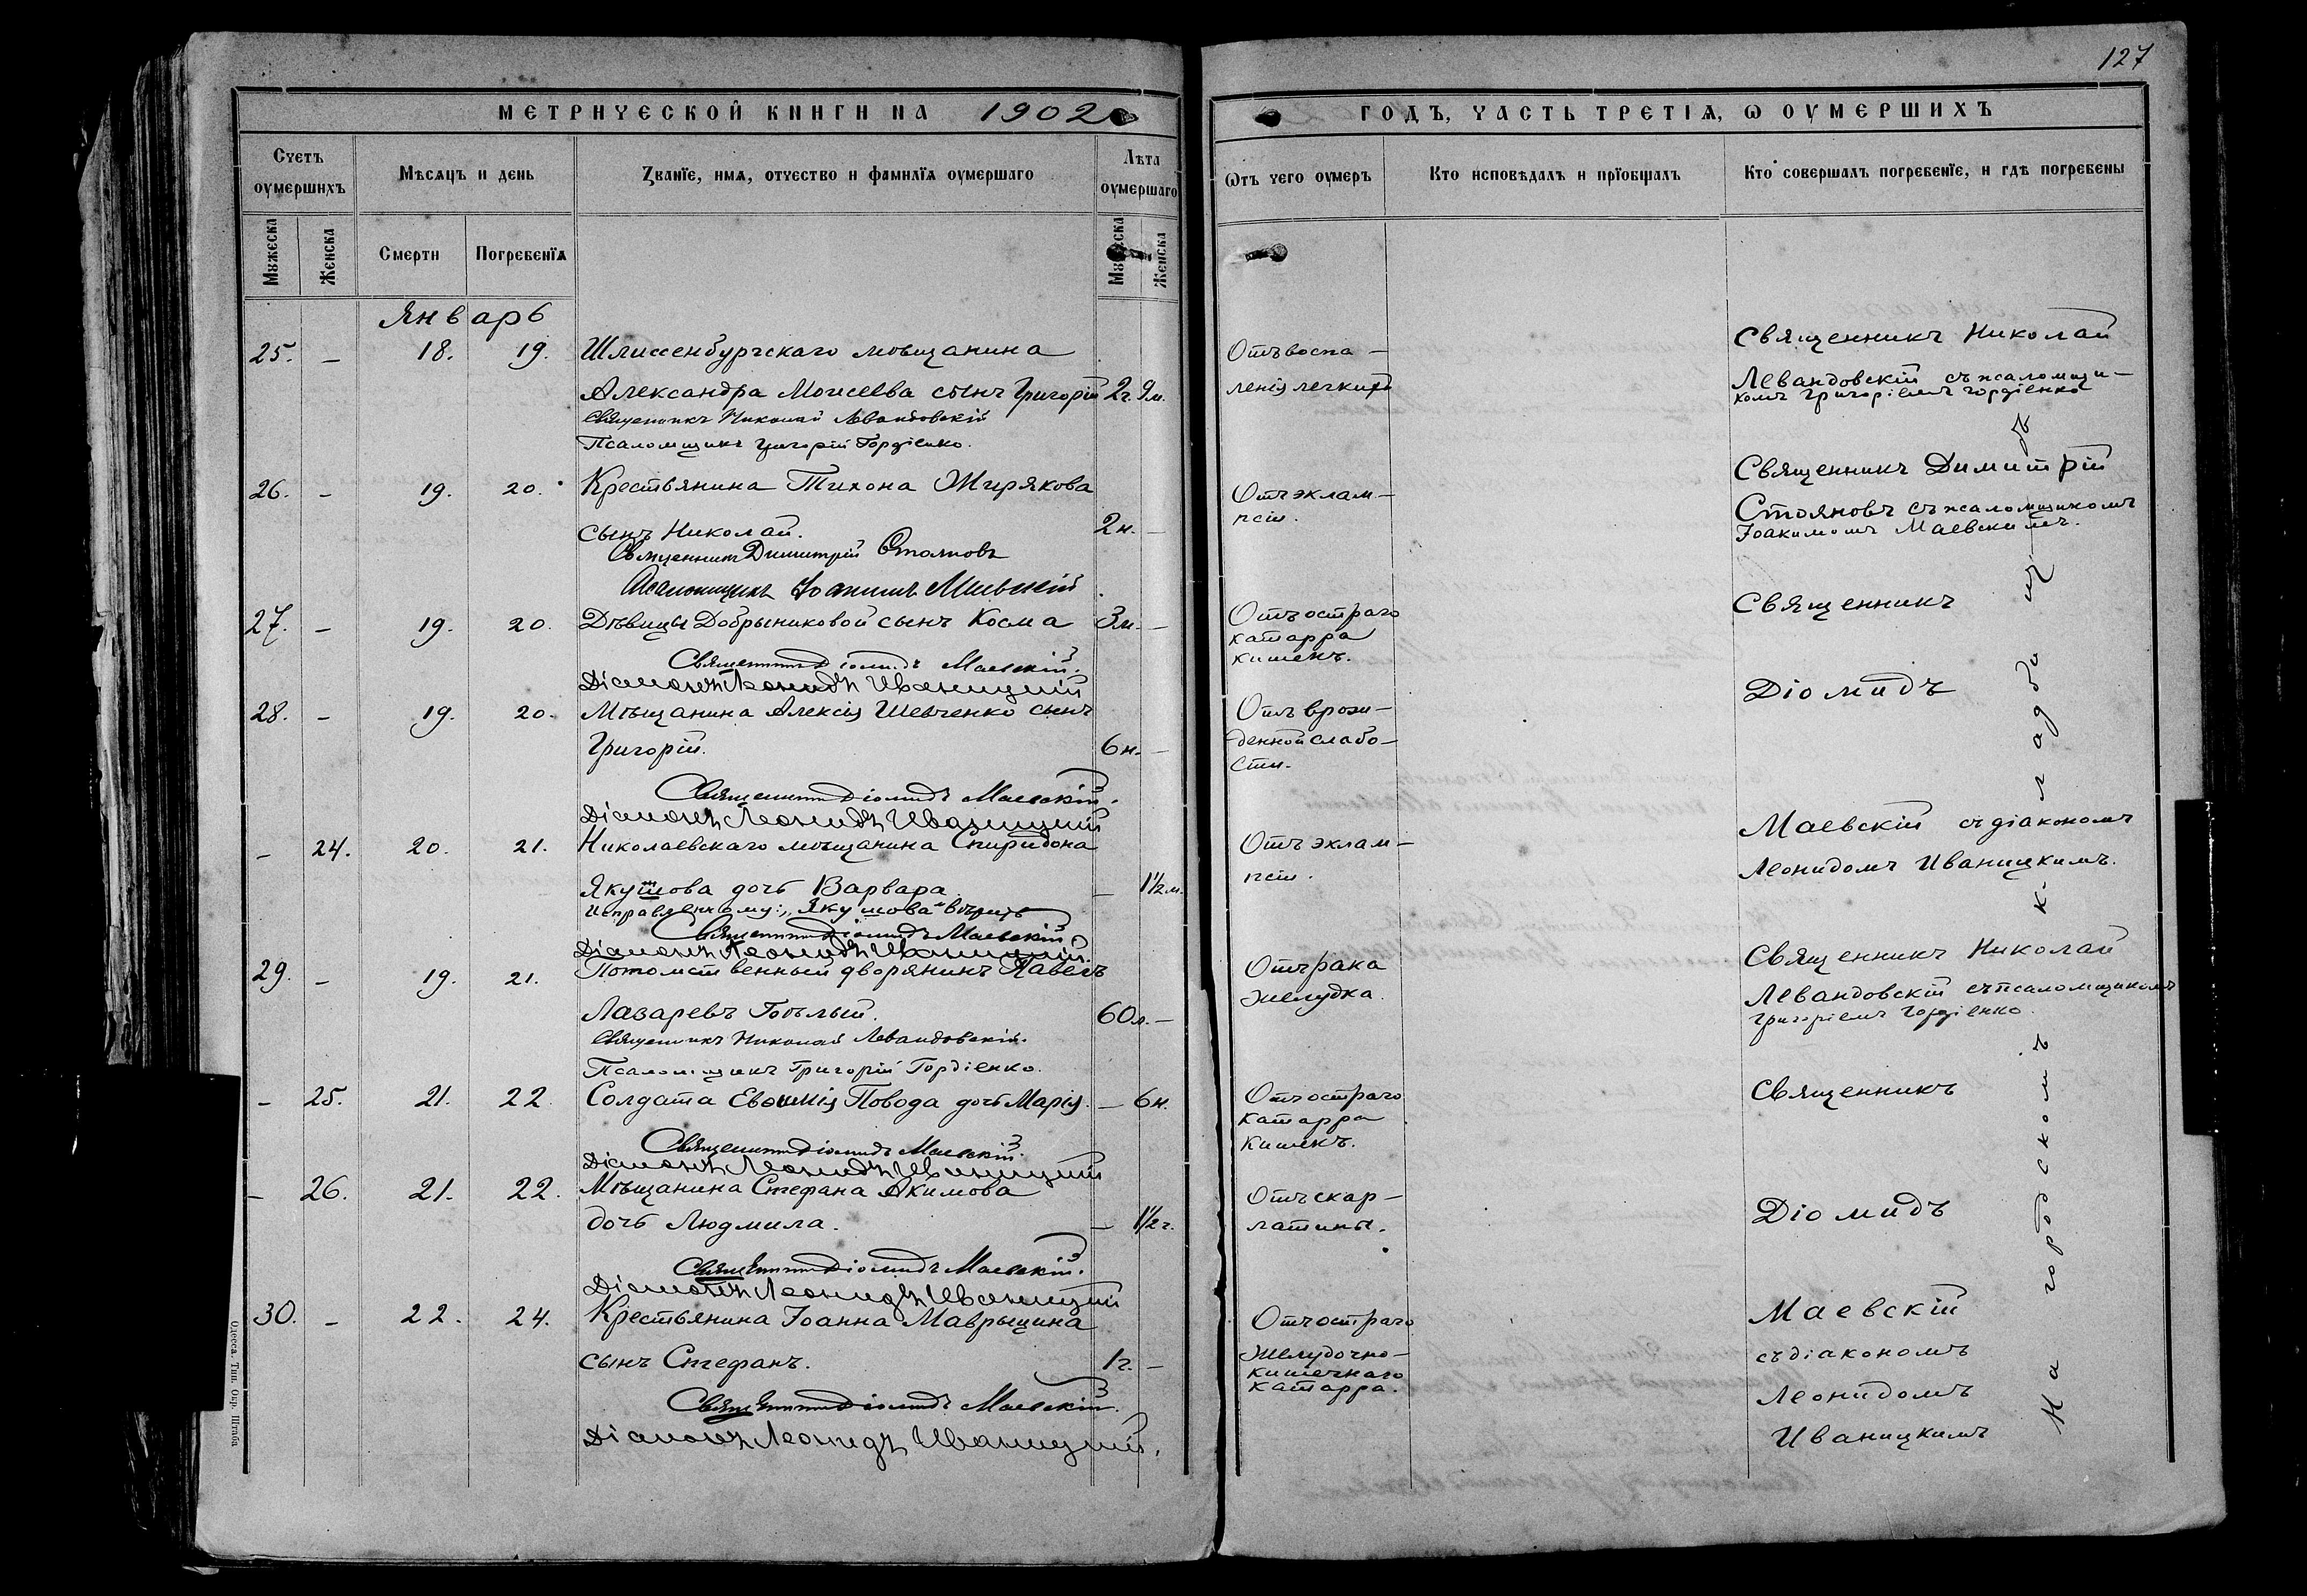 127
МЕТРИЧЕСКОЙ КНИГИ НА 1902
ГОДЪ, ЧАСТЬ ТРЕТІѦ, Ѡ ОУМЕРШИХЪ
Счетъ оумершихъ
Мѣсѧцъ и день
Званїе, имѧ, отчество и фамилїѧ оумершаго
Лѣта оумершаго
Ѿтъ чего оумеръ
Кто исповѣдалъ и прїобщалъ
Кто совершалъ погребенїе, и гдѣ погребены
Мужеска
Женска
Смерти
Погребенїѧ
Мужеска
Женска
Январь
25. – 18. 19. Шлиссенбургскаго мѣщанина
Александра Моисеева сынъ Григорій 2г. 9м.
Священникъ Николай Левандовскій
Псаломщикъ Григорій Гордіенко.
Отъ воспа–
ленія легкихъ
Священникъ Николай
Левандовскій съ псаломщи–
комъ Григоріемъ Гордіенко
26. – 19. 20. Крестьянина Тихона Жирякова
сынъ Николай. 2н. –
Священникъ Димитрій Стояновъ
Псаломщикъ Іоакимъ Маевскій
Отъ эклам–
псіи.
Священникъ Димитрій
Стояновъ съ псаломщикомъ
Іоакимомъ Маевскимъ.
27. – 19. 20. Дѣвицы Добрыниковой сынъ Косма 3м. –
Священникъ Діомидъ Маевскій.
Діаконъ Леонидъ Иваницкій
Отъ остраго
катарра
кишекъ.
Священникъ
28. – 19. 20. Мѣщанина Алексія Шевченко сынъ
Григорій. 6н. –
Священникъ Діомидъ Маевскій.
Діаконъ Леонидъ Иваницкій
Отъ врож–
денной слабо–
сти.
Діомидъ
– 24. 20. 21. Николаевскаго мѣщанина Спиридона
Якушова дочь Варвара. – 1½м.
Исправленному: „Якушова" вѣрить
Священникъ Діомидъ Маевскій
Діаконъ Леонидъ Иваницкій.
Отъ эклам–
псіи.
Маевскій съ діакономъ
Леонидомъ Иваницкимъ.
29. – 19. 21. Потомственный дворянинъ Павелъ
Лазаревъ Гоѣлый. 60л. –
Священникъ Николай Левандовскій.
Псаломщикъ Григорій Гордіенко.
Отъ рака
желудка.
Священникъ Николай
Левандовскій съ псаломщикомъ
Григоріемъ Гордіенко.
– 25. 21. 22. Солдата Евѳимія Повода дочь Марія. – 6н.
Священникъ Діомидъ Маевскій.
Діаконъ Леонидъ Иваницкій
Отъ остраго
катарра
кишекъ.
Священникъ
– 26. 21. 22. Мѣщанина Стефана Акимова
дочь Людмила. – 1½г.
Священникъ Діомидъ Маевскій.
Діаконъ Леонидъ Иваницкій
Отъ скар–
латины.
Діомидъ
30. – 22. 24. Крестьянина Іоанна Маврыщина
сынъ Стефанъ. 1г. –
Священникъ Діомидъ Маевскій.
Діаконъ Леонидъ Иваницкій.
Отъ остраго
желудочно–
кишечнаго
катарра.
Маевскій
съ діакономъ
Леонидомъ
Иваницкимъ
На городскомъ кладбищѣ
Одесса. Тип. Окр. Штаба